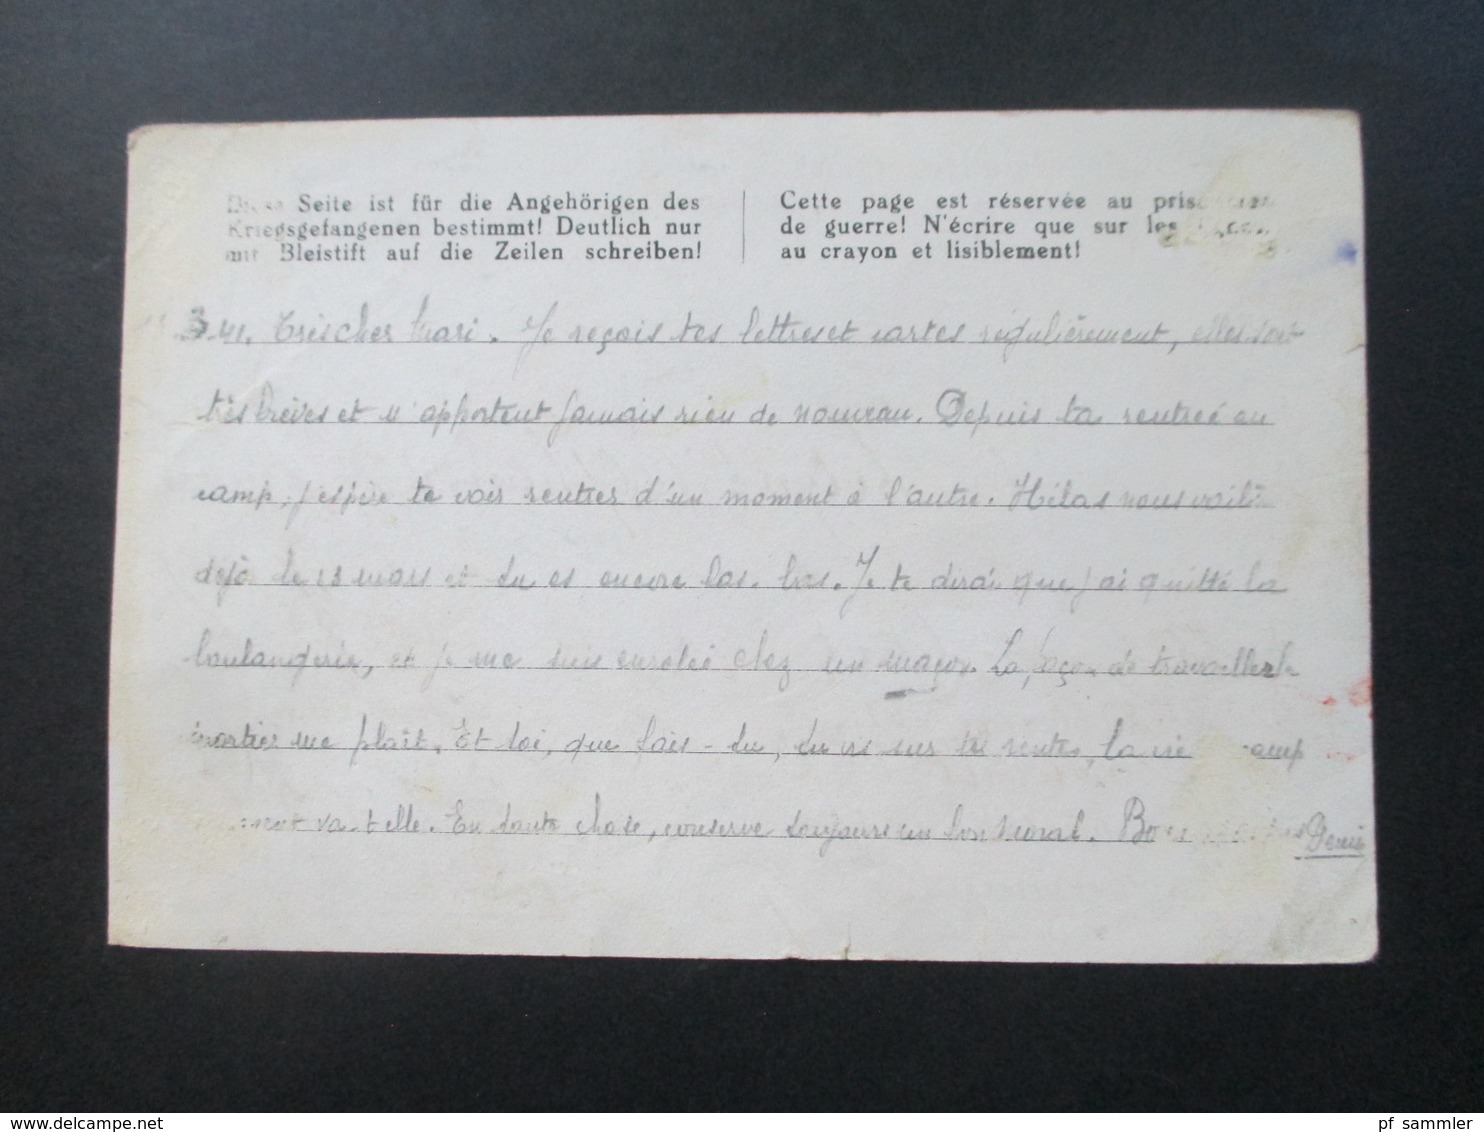 Diese Seite ist für die Angehörigen des
Kriegsgefangenen bestimmt! Deutlich nur
mit Bleistift auf die Zeilen schreiben!
Cette page est réservée au
de guerre! N'écrire que sur les
au crayon et lisiblement!
3.41. Très cher Mari. Je reçois tes lettres et cartes régulièrement, elles sont
très brèves et n'apportent jamais rien de nouveau. Depuis ta rentrée au
camp, j'espère te voir rentrer d'un moment à l'autre. Hélas nous voilà
déjà le 13 mars et tu es encore las-bas. Je te dirai que j'ai quitté la
boulangerie, et je me suis enrolée chez un maçon. La façon de travailler le
mortier me plaît. Et toi, que fais-tu, tu vis sur tes rentes, la vie camp
va-t-elle. En toute chose, conserve toujours un bon moral. Denis
pf sammler
delcampe.net